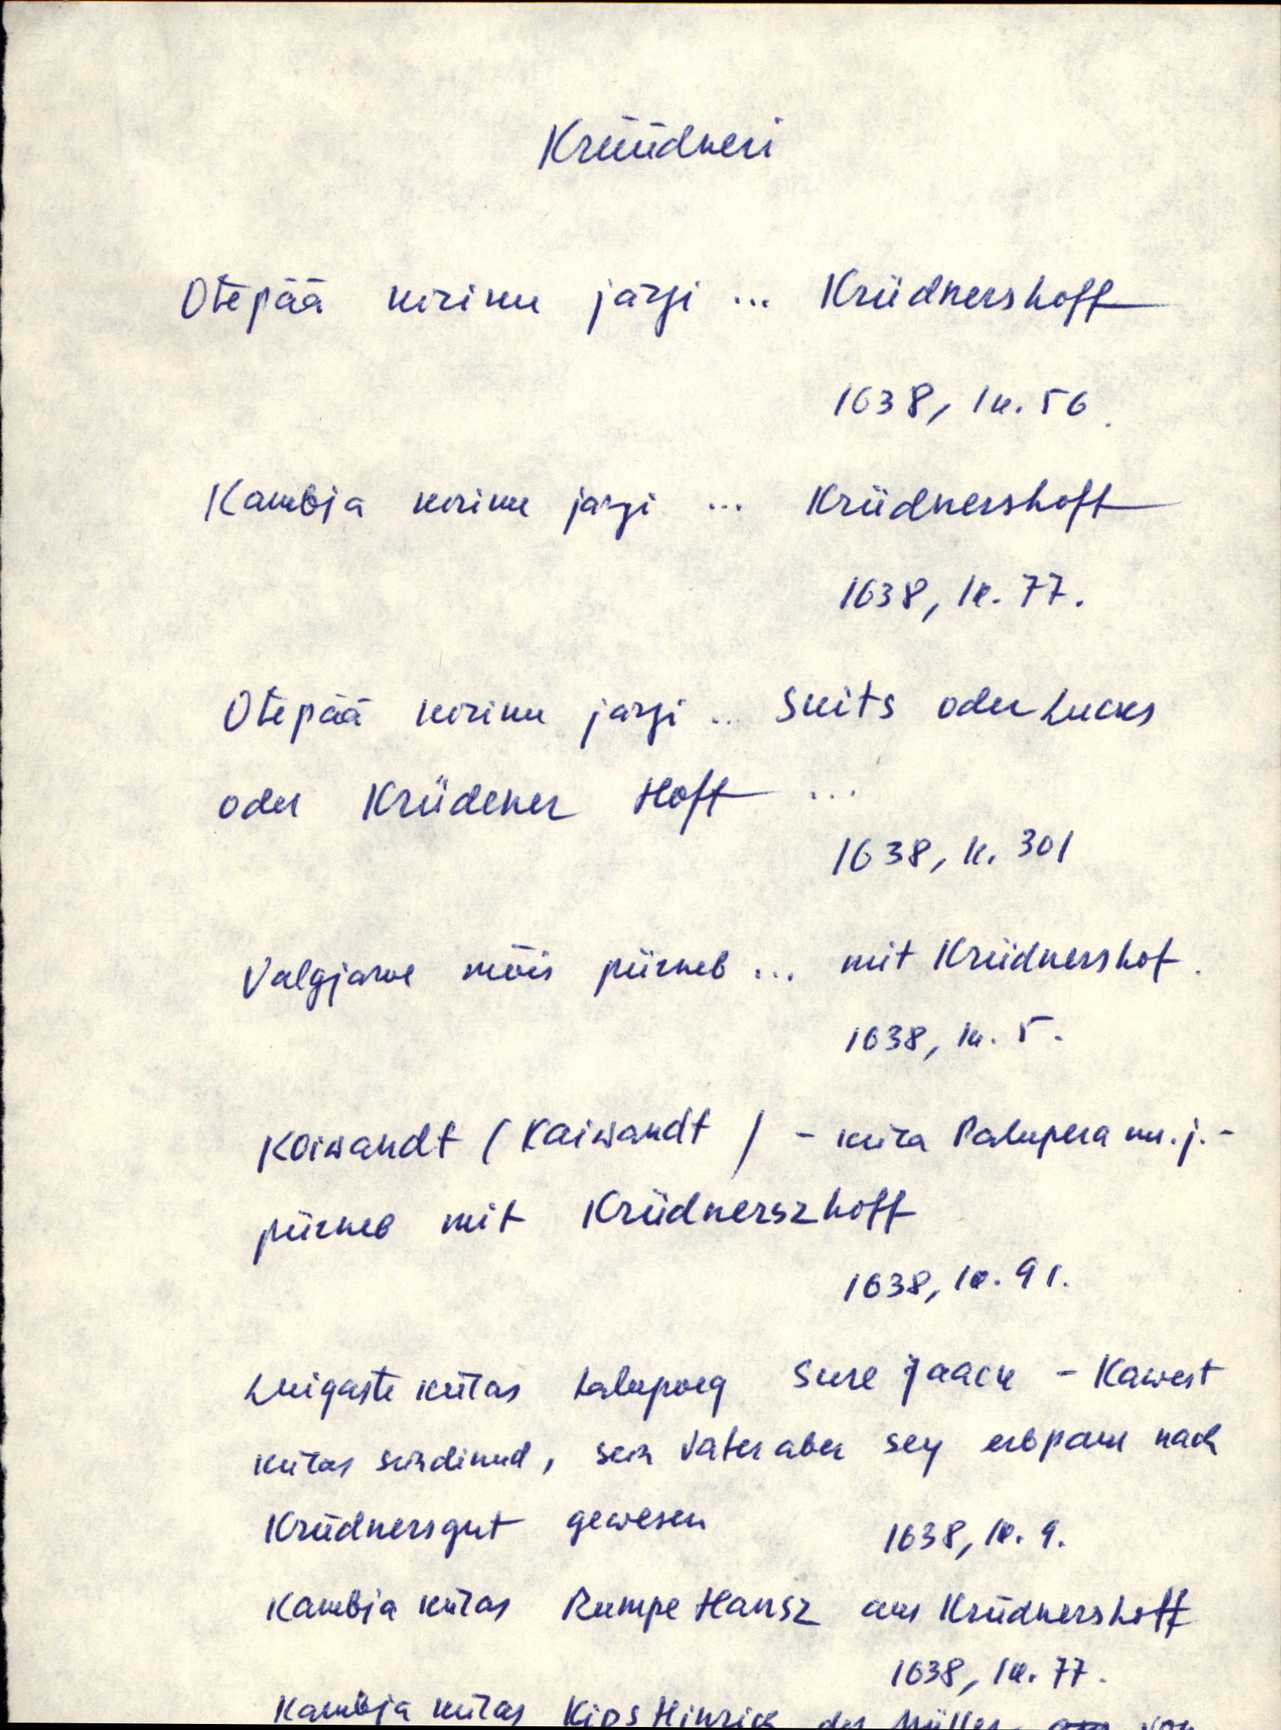 Krüüdneri
Otepää kiriku järgi ... Krüdnershoff
1638, lk. 56.
Kambja kiriku järgi ... Krüdnershoff
1638, lk. 77.
Otepää kiriku järgi .. Suits oder Lucas
oder Krüdener Hoff ...
1638, lk. 301
Valgjärve mõis piirneb ... mit Krüdnershof.
1638, lk. 5.
Koiwandt (Kaiwandt) - küla Palupera m. j. -
piirneb mit Krüdnerszhoff
1638, lk. 91.
külas talupoeg Sure Jaack - Kawest
külas sündinud, sein Vater aber sey erbpaur nach
Krüdnersgut gewesen
1638, lk. 9.
Kambja külas Rumpe Hansz aus Krüdnershoff
1638, lk. 77.
Kambja külas Kips Hinrich der Müller von